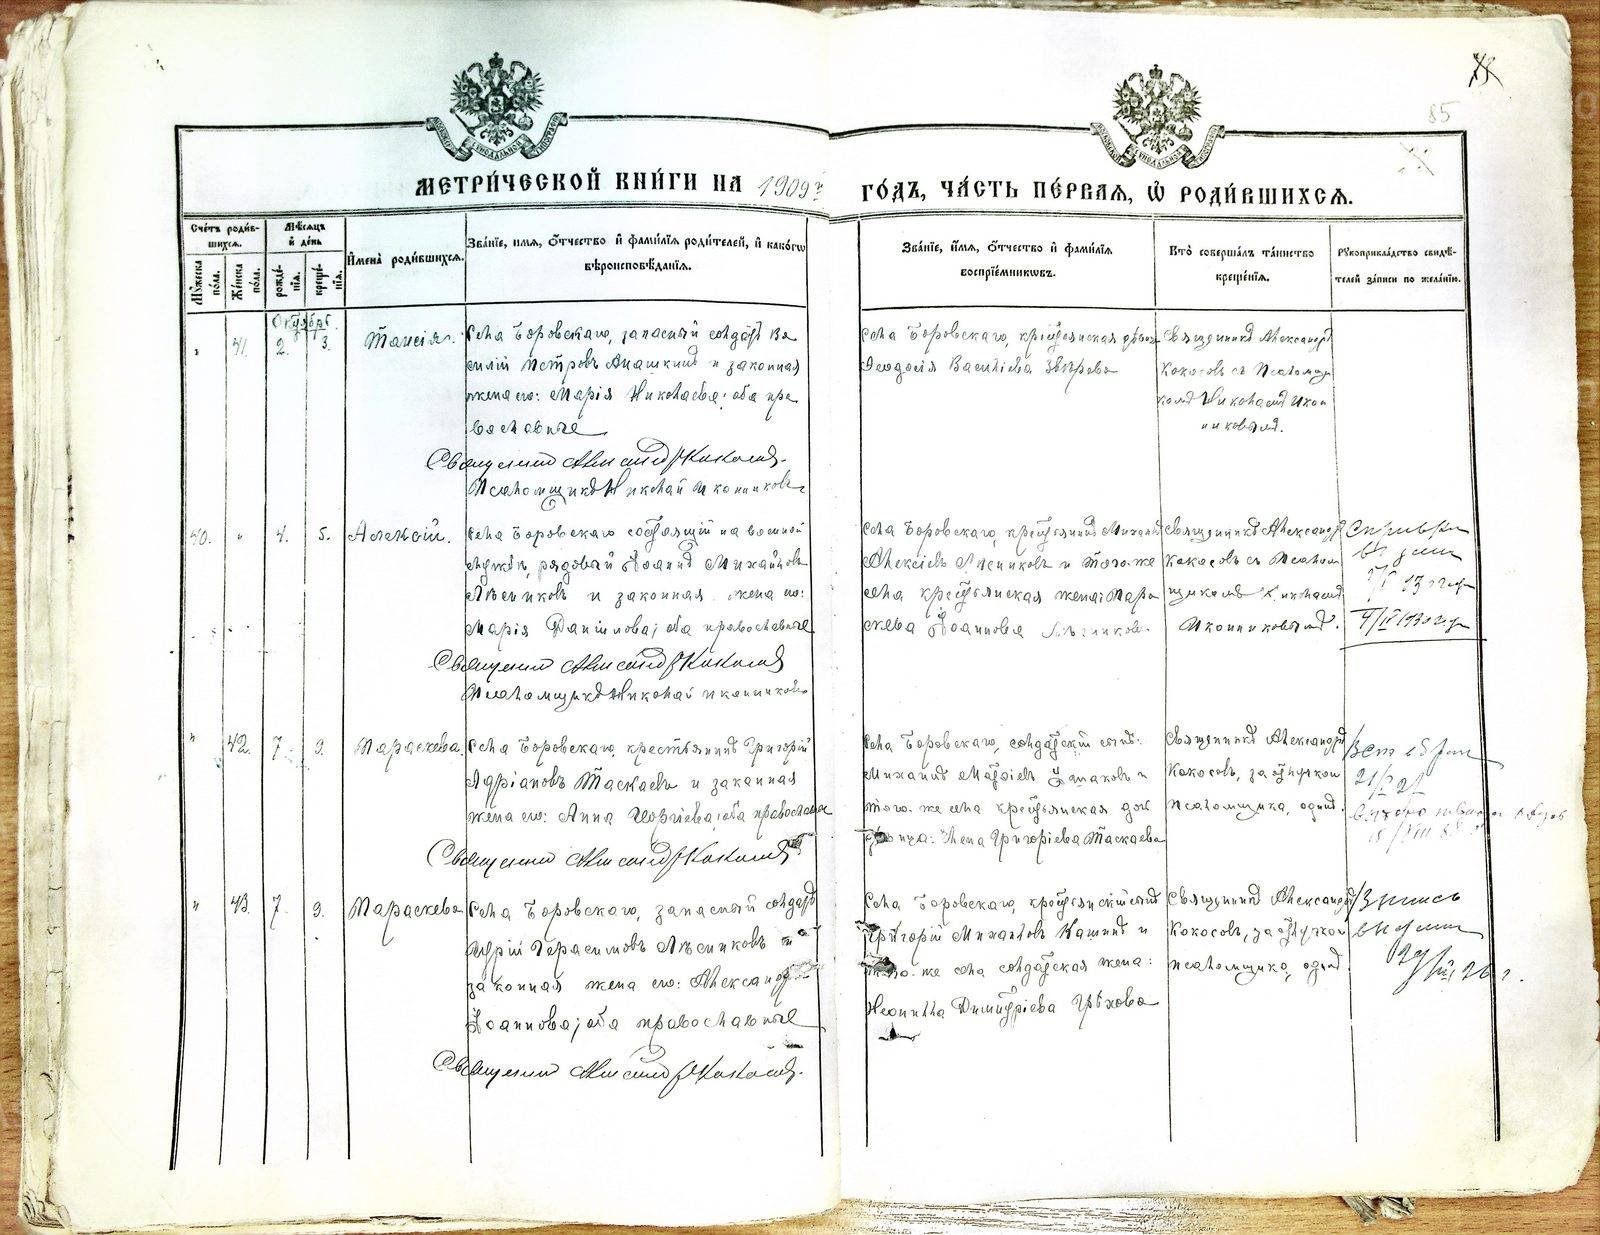 85
МЕТРИ́ЧЕСКОЙ КНИ́ГИ НА 1909й ГО́ДЪ, ЧА́СТЬ ПЕ́РВАЯ, Ѡ РОДИ́ВШИХСЯ.
Сче́тъ роди́в-
шихся.
Мѣ́сяцъ
и де́нь
Му́жеска по́ла.
Же́нска по́ла.
рожде́-
нїя.
креще́-
нїя.
Имена̀ роди́вшихся.
Зва́нїе, имя, о́тчество и фами́лїя роди́телей, и како́гѡ
вѣроисповѣ́данїя.
Зва́нїе, и́мя, о́тчество и фами́лїя
воспрїе́мникѡвъ.
Кто̀ соверша́лъ та́инство
креще́нїя.
Рукоприкла́дство свидѣ́-
телей за́писи по жела́нїю.
Октябрь.
" 41. 2. 3. Таисія.
Села Боровскаго, запасный солдатъ Ва
силій Петровъ Анашкинъ и законная
жена его: Марія Николаева; оба пра
вославные
Священникъ Александръ Кокосовъ.
Псаломщикъ Николай Иконниковъ
Села Боровскаго, крестьянская
Ѳеодосія Васильева Звѣрева
Священникъ Александръ
Кокосовъ съ псаломщи
комъ Николаемъ Икон
никовымъ.
40. " 4. 5. Алексій.
Села Боровскаго состоящій на военной
службѣ, рядовый Іоаннъ Михайловъ
Лѣсниковъ и законная жена его:
Марія Данилова; оба православные
Священникъ Александръ Кокосовъ
Псаломщикъ Николай Иконниковъ
Села Боровскаго, крестьянинъ Михаилъ
Алексіевъ Лѣсниковъ и того-же
села крестьянская жена: Пара
скева Іоаннова Лѣсникова
Священникъ Александръ
Кокосовъ съ псалом
щикомъ Николаемъ
Иконниковымъ.
" 42. 7. 9. Параскева.
Села Боровскаго, крестьянинъ Григорій
Адріановъ Таскаевъ и законная
жена его: Анна Георгіева; оба православные
Священникъ Александръ Кокосовъ
Села Боровскаго, солдатскій сынъ:
Михаилъ
того-же села крестьянская доч
Елена Григоріева Таскаева
Священникъ Александръ
Кокосовъ, за отлучкою
псаломщика, одинъ.
" 43. 7. 9. Параскева
Села Боровскаго, запасный солдатъ
Юрій Герасимовъ Лѣсниковъ и
законная жена его: Александра
Іоаннова; оба православные
Священникъ Александръ Кокосовъ.
Села Боровскаго, крестьянскій сынъ
Григорій Михаиловъ Кашинъ и
того-же села солдатская жена:
Неонилла Димитріева Грѣхова
Священникъ Александръ
Кокосовъ, за отлучкою
псаломщика, одинъ.